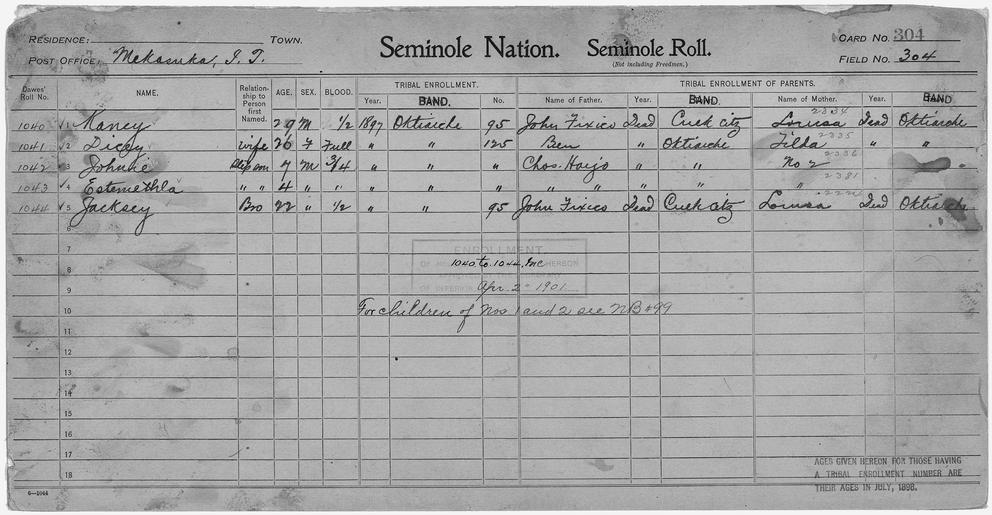 RESIDENCE: TOWN.
POST OFFICE: Mekasuka, I. T.
Seminole Nation. Seminole Roll.
(Not including Freedmen.)
CARD NO. 304
FIELD NO. 304
Dawes' Roll No. NAME. Relationship to Person first Named. AGE. SEX. BLOOD. TRIBAL ENROLLMENT. TRIBAL ENROLLMENT OF PARENTS.
Year. BAND. No. Name of Father. Year. BAND Name of Mother. Year. BAND
2334
1040 √ 1 Naney 29 M 1/2 1897 Oktiarche 95 John Fixico Dead Creek citz Louisa Dead Oktiarche
2335
1041 √ 2 Dicey wife 26 F Full " " 125 Ben " Oktiarche Tilda " "
2336
1042 √ 3 Johnie Step son 7 M 3/4 " " Chos. Harjo " " No 2
2381
1043 √ 4 Estemethla " " 4 " " " " " " " "
1044 √ 5 Jacksey Bro 22 " 1/2 " " 95 John Fixico Dead Creek citz Louisa Dead Oktiarche
6
7
ENROLLMENT
8 1040 to 1044, Inc HEREON
9 Apr. 2 1901
10 For children of Nos 1 and 2 see NB #99
11
12
13
14
15
16
17
18
AGES GIVEN HEREON FOR THOSE HAVING
A TRIBAL ENROLLMENT NUMBER ARE
THEIR AGES IN JULY, 1898.
6—1044